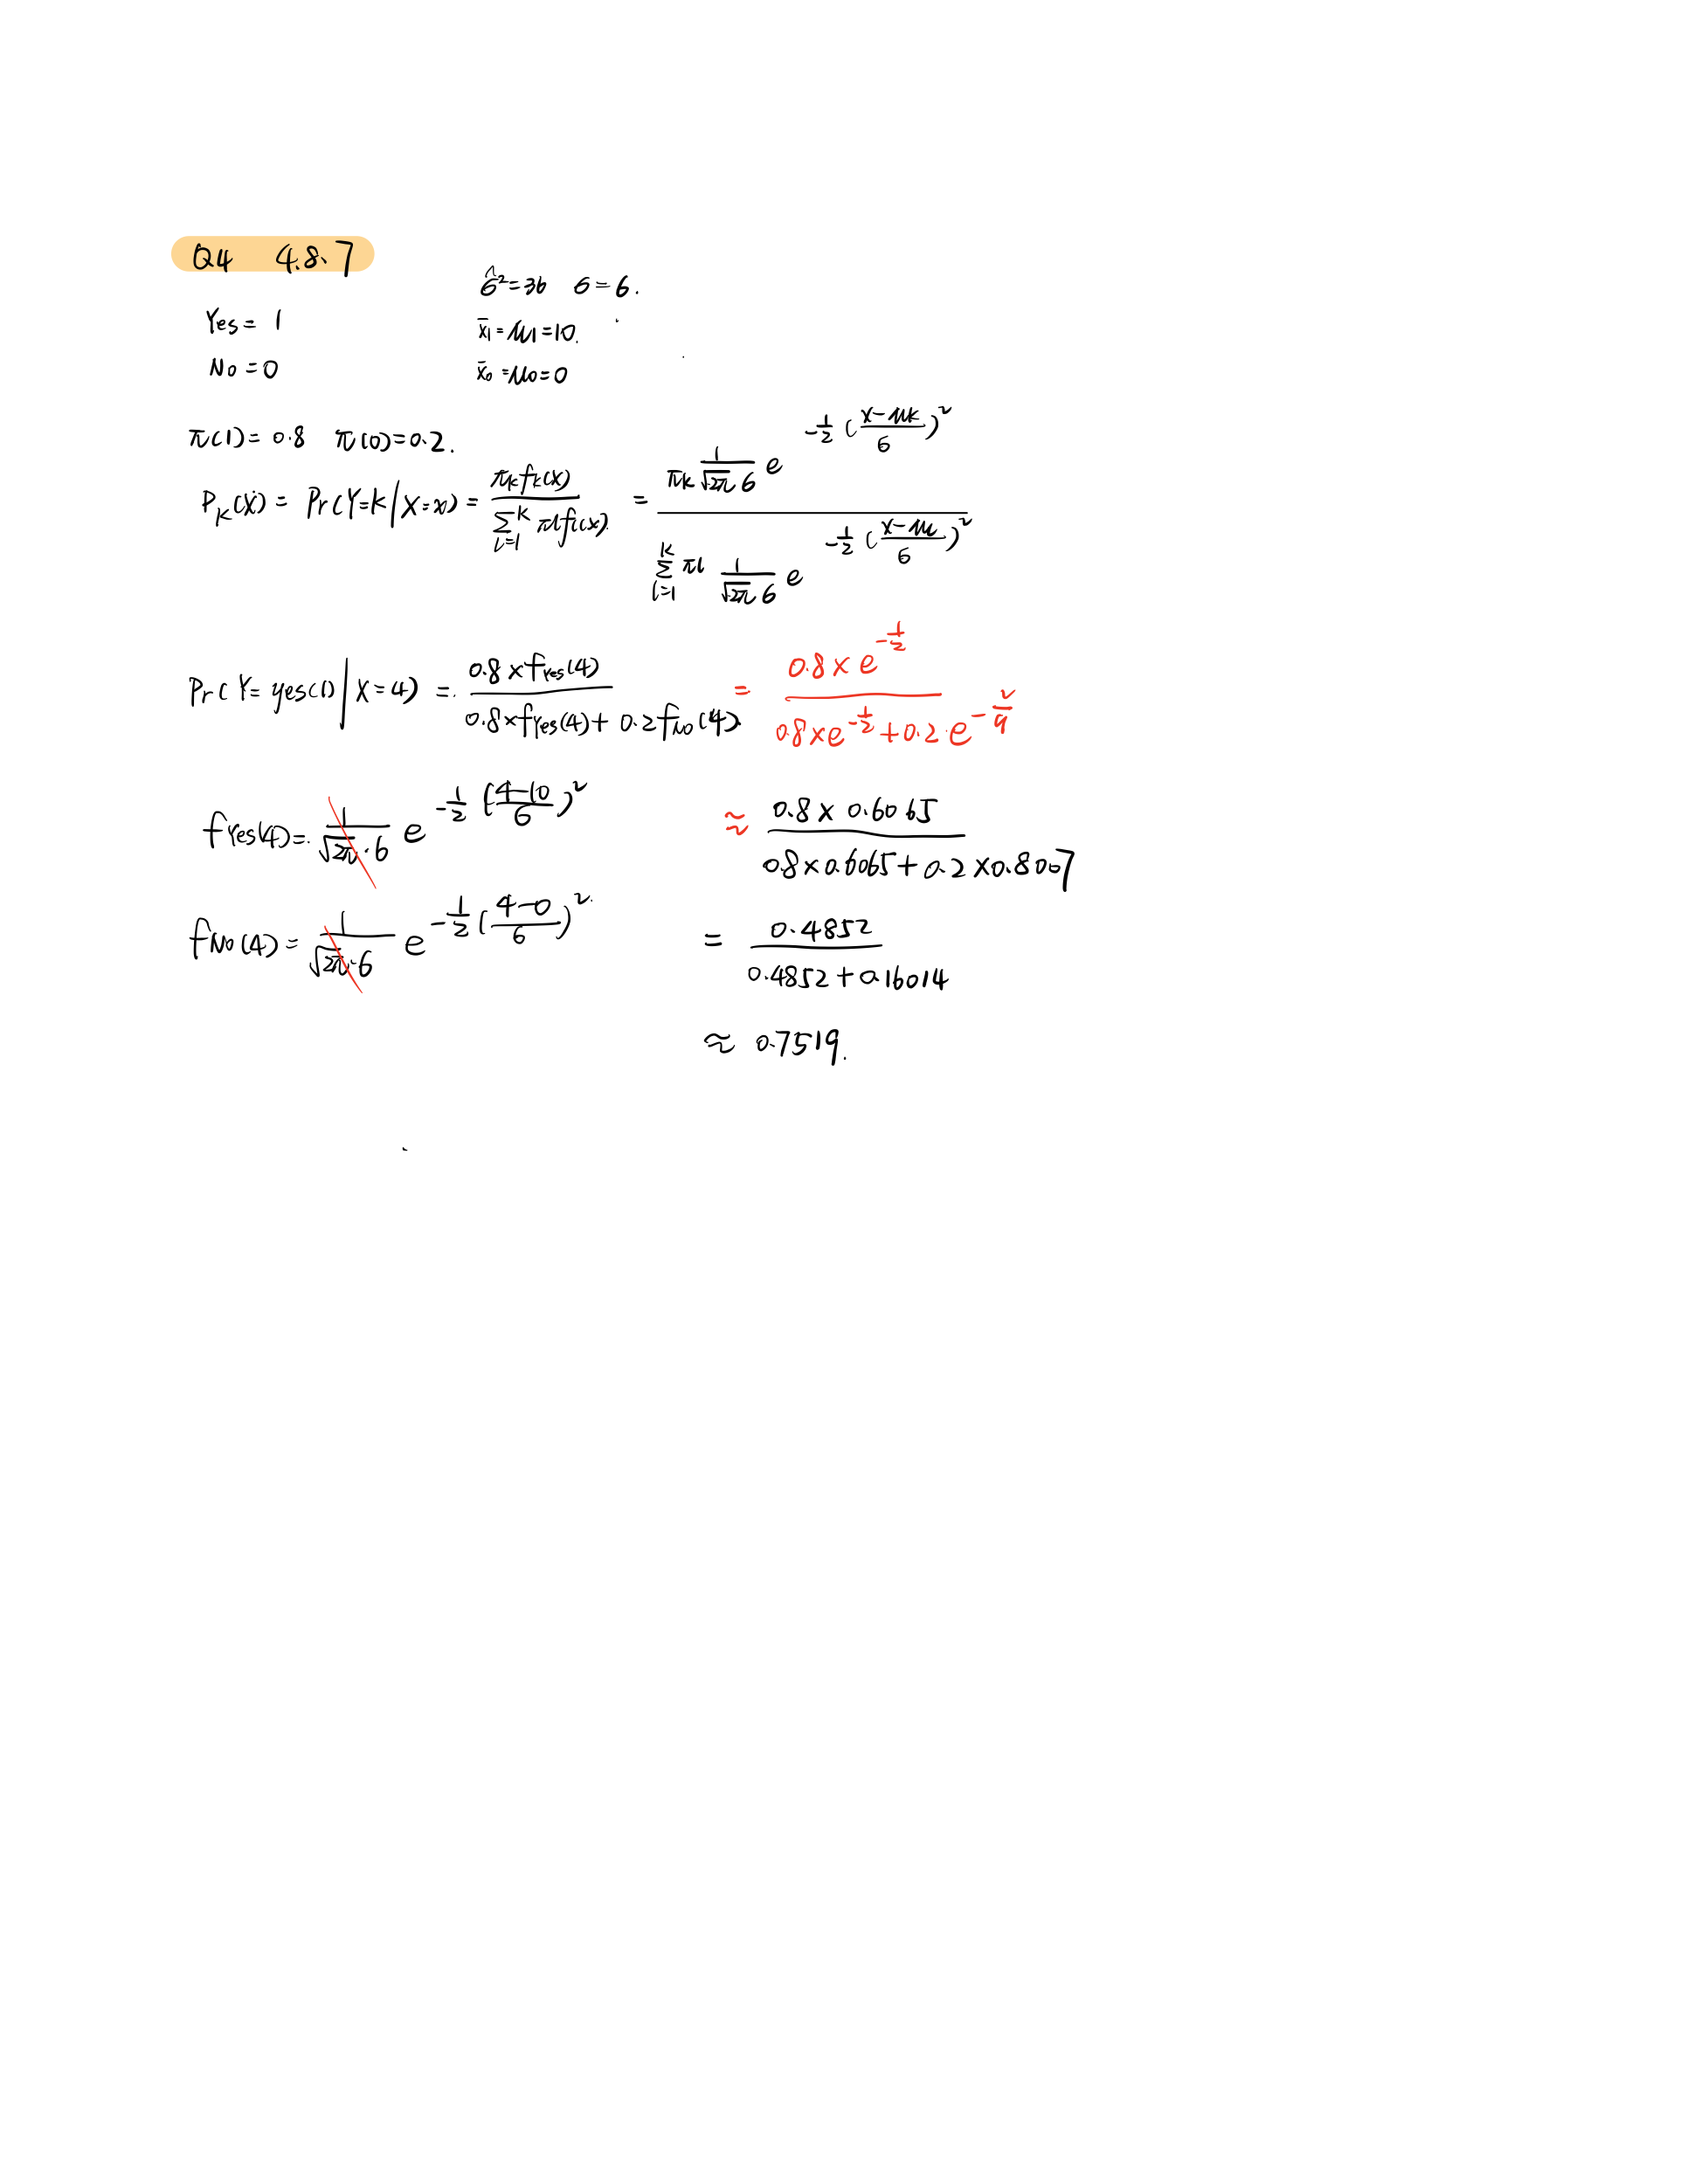 Q4 4.8.7
σ̂²=36 σ=6.
Yes = 1
x̄₁ = μ₁ = 10.
No = 0
x̄₀ = μ₀ = 0
π(1) = 0.8 π(0) = 0.2.
P_k(x) = Pr(Y=k|X=x) = π_k f_k(x) / Σ_{l=1}^{K} π_l f_l(x) = π_k 1/(√2π σ) e^{-1/2 ((x-μ_k)/σ)²} / Σ_{l=1}^{K} π_l 1/(√2π σ) e^{-1/2 ((x-μ_l)/σ)²}
Pr(Y=yes(1)|X=4) = 0.8×f_Yes(4) / (0.8×f_Yes(4) + 0.2 f_No(4)) = 0.8×e^{-1/2} / (0.8×e^{-1/2} + 0.2·e^{-2/9})
f_Yes(4) = 1/(√2π·6) e^{-1/2 ((4-10)/6)²}
≈ 0.8×0.6065 / (0.8×0.6065 + 0.2×0.8007)
f_No(4) = 1/(√2π·6) e^{-1/2 ((4-0)/6)²}
= 0.4852 / (0.4852 + 0.16014)
≈ 0.7519.